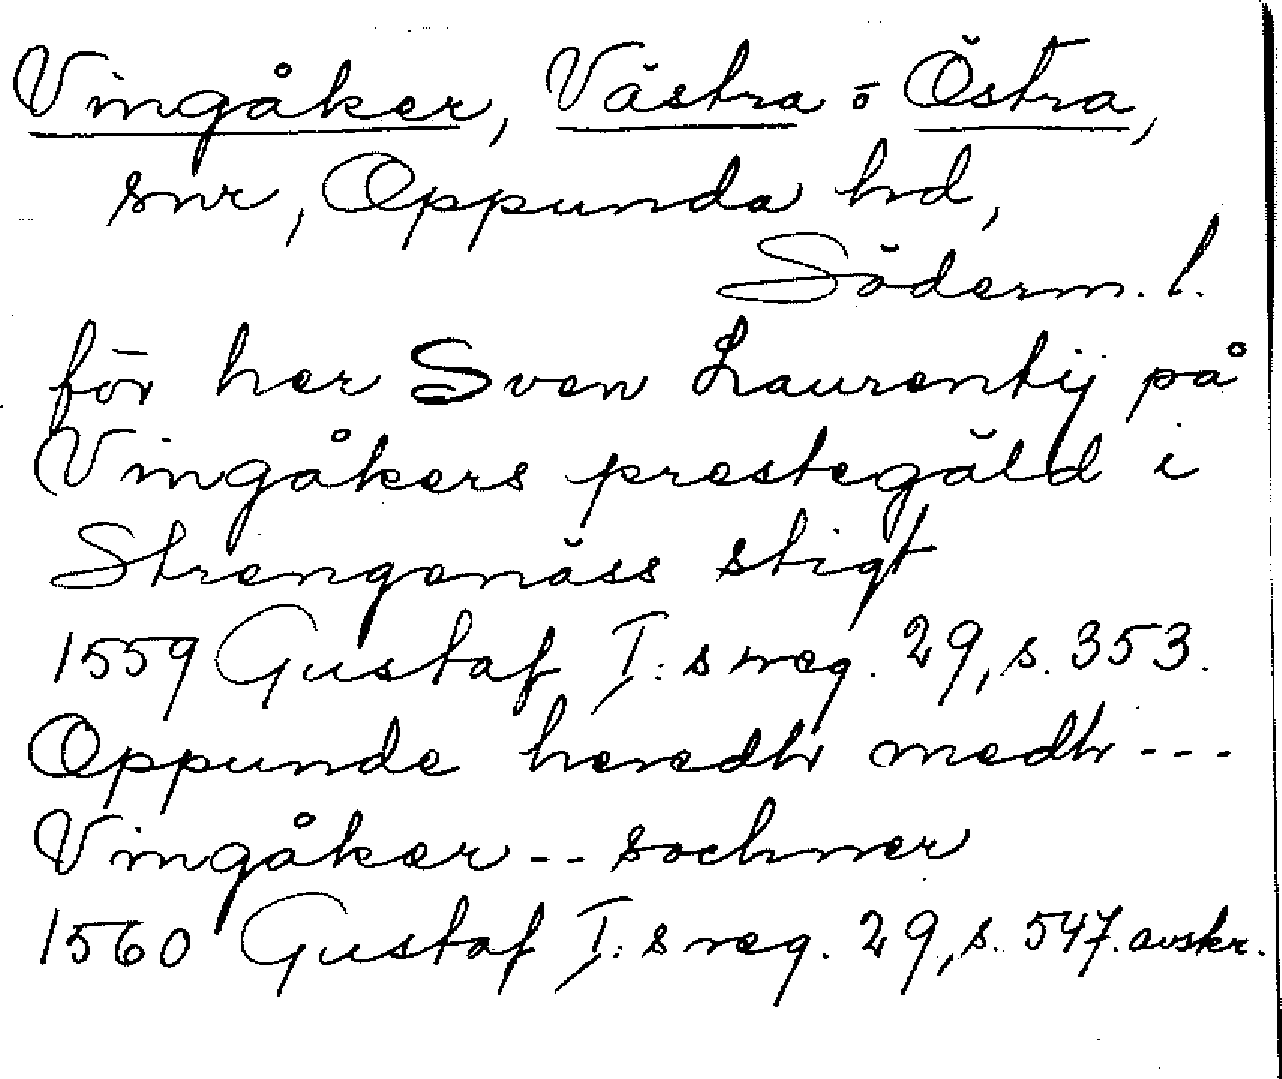 Vingåker, Västra o Östra,
snr, Oppunda hd,
Söderm. l.
för her Sven Laurentij på
Vingåkers prestegäld i
Strengenäss stigt
1559 Gustaf I:s reg. 29, s. 353.
Oppunde heredh medh ---
Vingåker -- sochner
1560 Gustaf I:s reg. 29, s. 547. avskr.